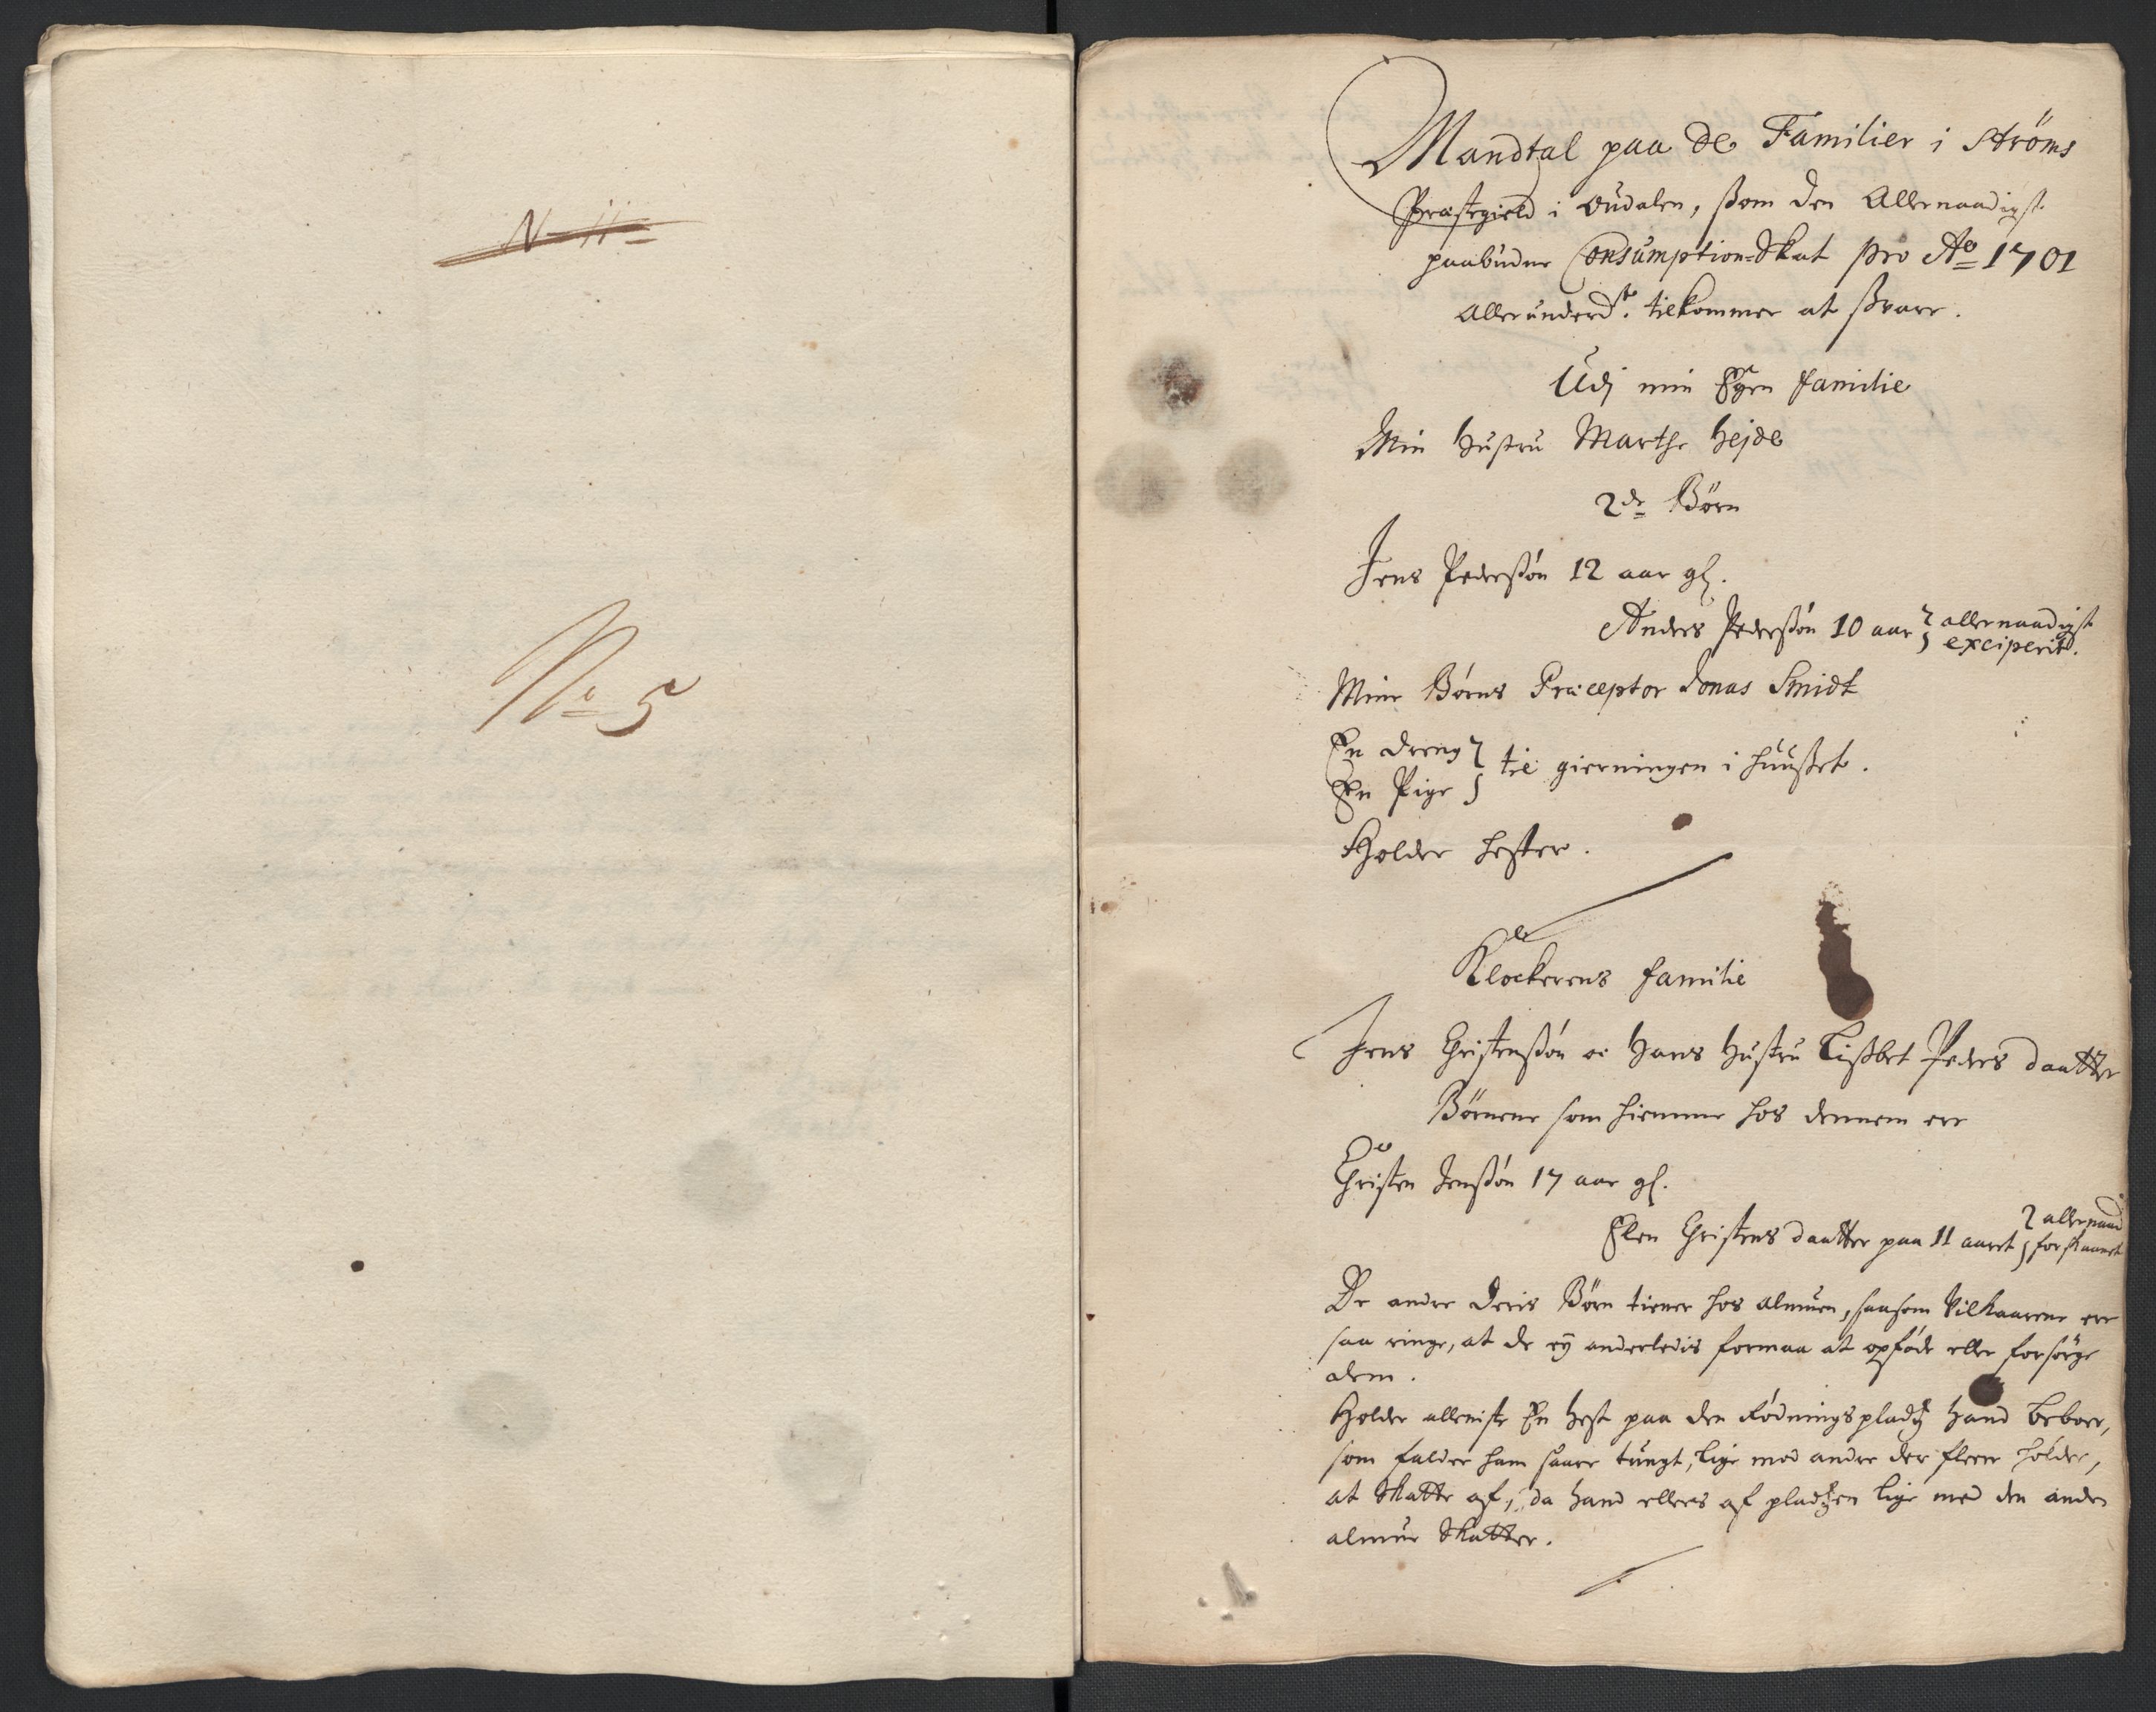 N 11
No 5
Mandtal paa de Familier i Ströms
Præstegield i Oudalen, ßom den Allernaadigst
paabudne Consumption-Skat pro Ao 1701
allerunderd. tilkommer at ßvare.
Udj min Egen familie
Min Hustru Marthe Hejde
2de Börn
Jens Pederßön 12 aar gl.
Anders Pederßön 10 aar allernaadigst
exciperit.
Mine Börns Præceptor Jonas Smidt
En dreng
En Pige til gierningen i huußet.
Holder hester.
Klockerens familie
Jens Christenßön oc Hans Hustru Lißbet Peders daatter
Börnene som hiemme hos dennem ere
Christen Jenßön 17 aar gl.
Elen Christens daatter paa 11 aaret allernaad
forskaanet
De andre deris Börn tiener hos almuen, saasom Vilkaarene ere
saa ringe, at de eÿ anderledis formaa at opföde eller forsörge
dem.
Holder alleniste En Hest paa den Rödningspladtz Hand beboer,
som falder ham saare tungt, lige mod andre der fleere holder,
at Skatte af, da Hand ellers af pladtzen lige med den anden
almue Skatter.